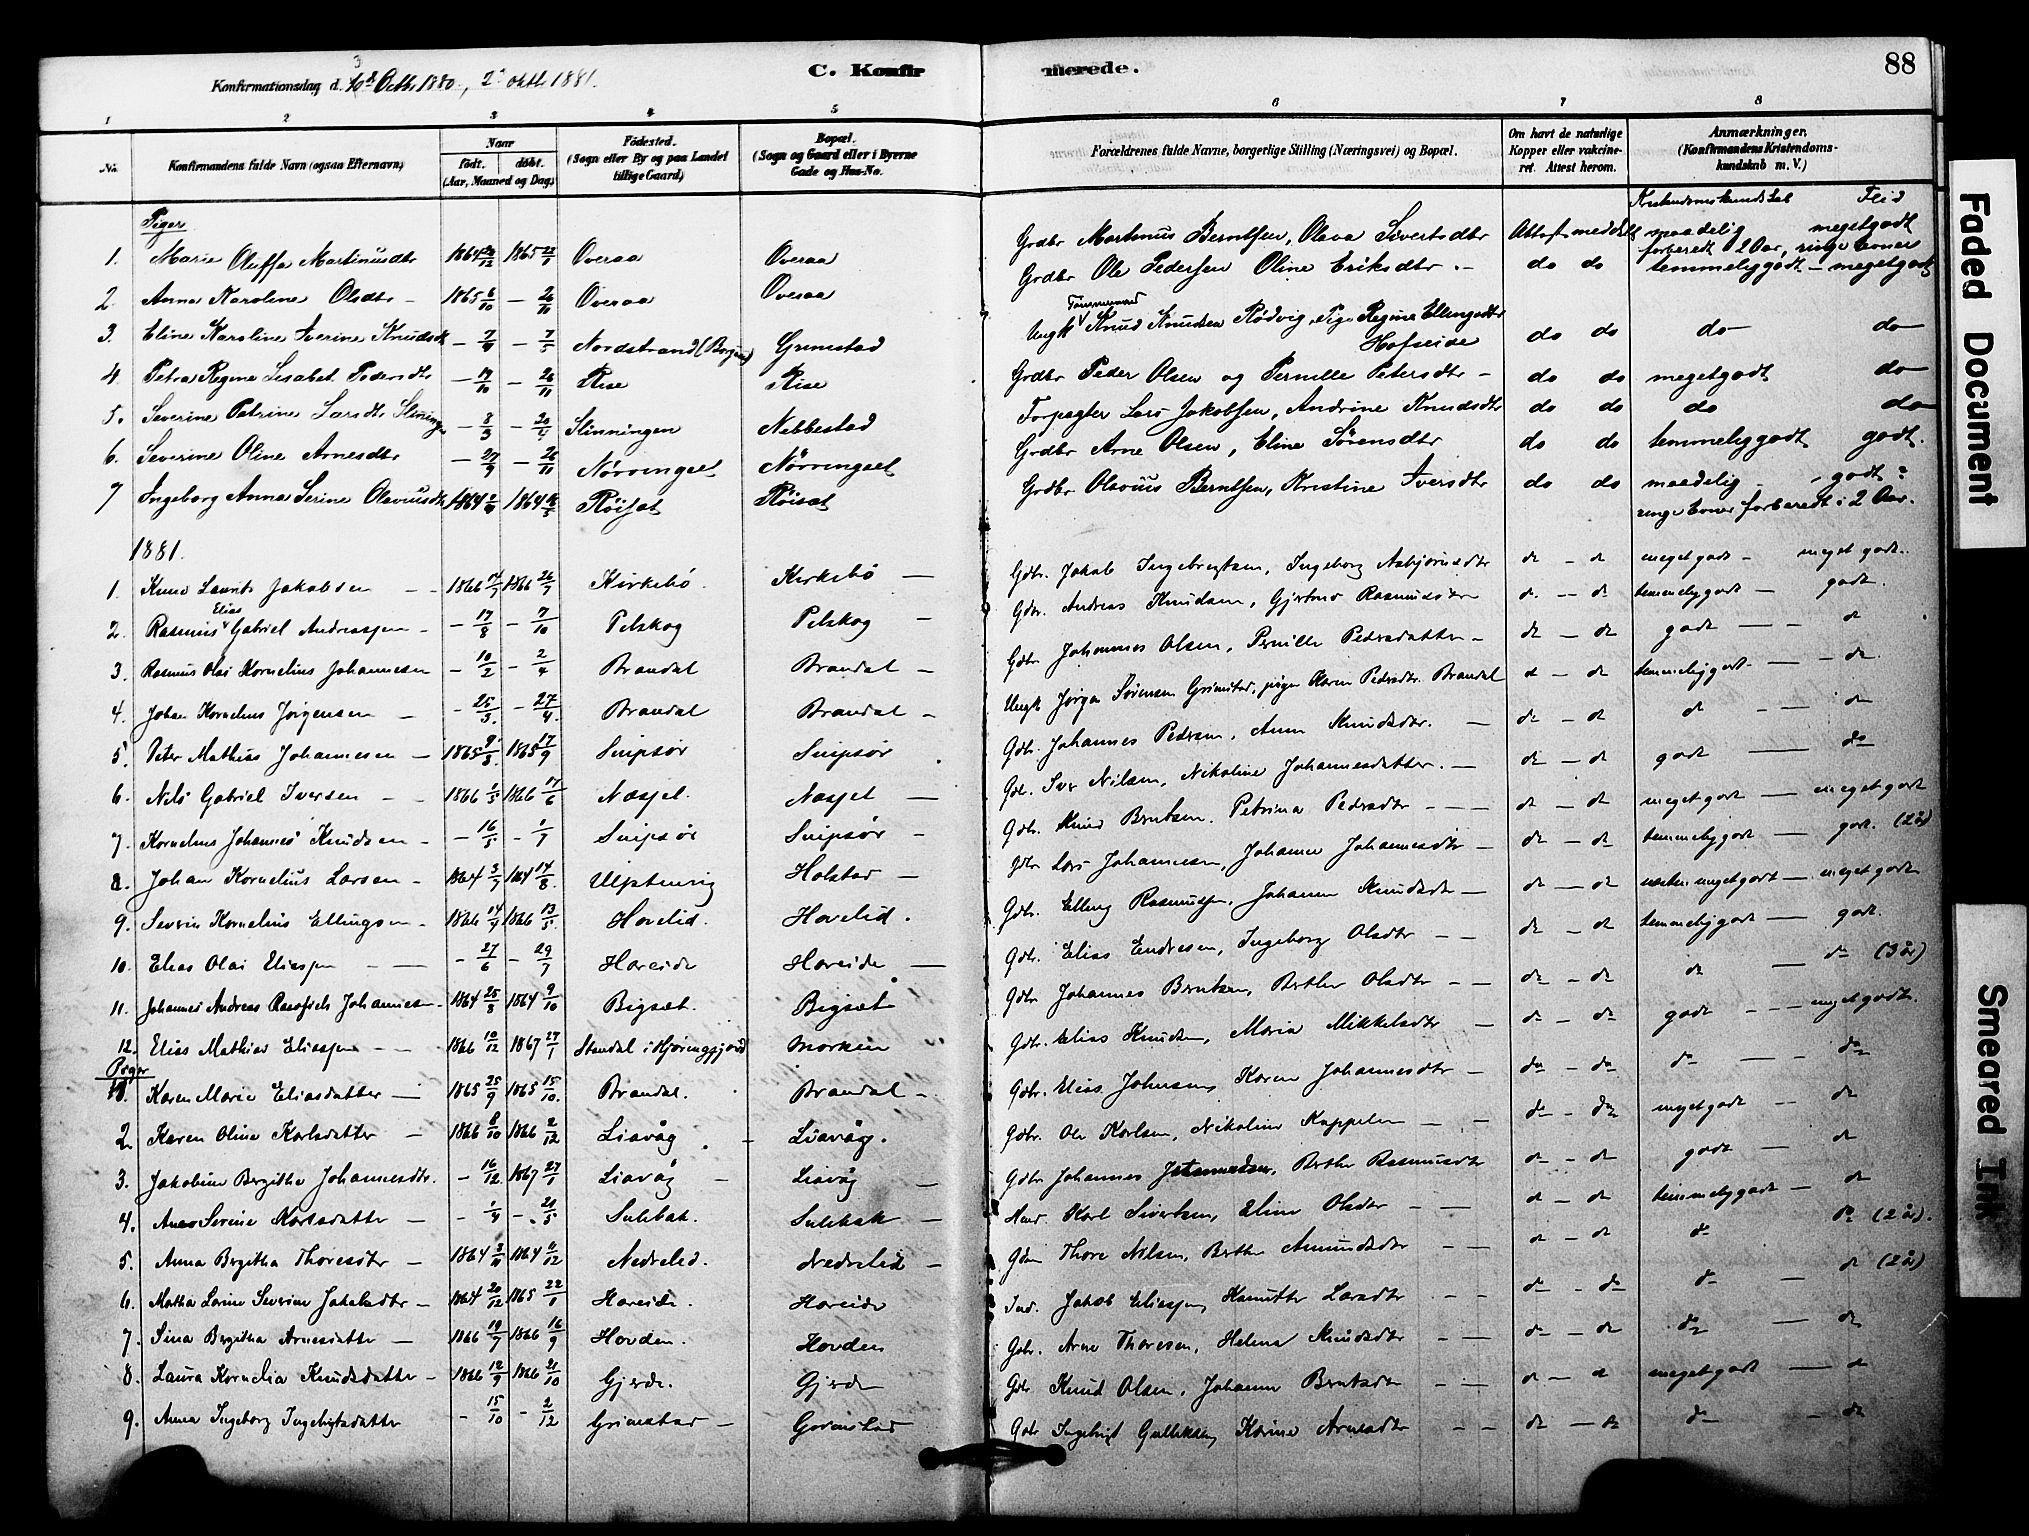 88
C. Konfirmerede.
Konfirmationsdag d. 3 Octb. 1880, 2. oktb. 1881.
1 2 3 4 5 6 7 8
No. Konfirmandens fulde Navn (ogsaa Efternavn) Naar født. døbt. (Aar, Maaned og Dag) Fødested. (Sogn eller By og paa Landet tillige Gaard) Bopæl. (Sogn og Gaard eller i Byerne Gade og Hus-No. Forældrenes fulde Navne, borgerlige Stilling (Næringsvei) og Bopæl. Om havt de naturlige Kopper eller vakcineret. Attest herom. Anmærkninger. (Konfirmandens Kristendomskundskab m. V.)
Piger Kristendomskundskab Flid
1. Marie Oluffa Martinusdtr 1864 1865 Overaa Overaa Grdbr Martinus Berntsen, Olava Sivertsdtr Attest meddelt maadelig megetgodt
forberedt 2 Aar, ringe Evner
2. Anna Karoline Olsdtr - 1865 6/10 - 26/11 Overaa Overaa Grdbr Ole Pedersen Oline Eriksdtr - do do temmeliggodt - megetgodt
3. Eline Karoline Iverine Knudsdtr - - 7/5 Nordstrand (Borgund) Grimstad Ungk Knud Knudsen Rødvig, Pige Regine Ellingsdtr Hofseide do do do do
4. Petra Regine Lisabet Pedersdtr - 17/10 - 26/11 Rise Rise Grdbr Peder Olsen og Pernille Petersdtr - do do megetgodt do
5. Severine Petrine Larsdtr Slinningen - 8/3 - 20/4 Slinningen Nebbestad Forpagter Lars Jakobsen, Andrine Knudsdtr do do do do
6. Severine Oline Arnesdtr - 27/9 - 26/11 Nørvingset Nørvingset Grdbr Arne Olsen, Eline Sørensdtr do do temmeliggodt godt.
7 Ingeborg Anna Serine Olavusdtr 1864 1864 Røiset Røiset Grdbr Olavus Berntsen, Kristine Iversdtr do do maadelig - godt
ringe Evner forberedt i 2 Aar.
1881.
1. Knud Laurits Jakobsen - - 1866 1866 26/7 Kirkebø. Kirkebø - Gdbr. Jakob Ingebrigtsen, Ingeborg Asbjørnsdtr do - do megetgodt - meget godt.
2. Rasmus Elias Gabriel Andreassen - - 17/8 - 7/10 Pelskog Pelskog - Gdbr. Andreas Knudsen, Gjertrud Rasmusdtr do - do temmeliggodt - godt.
3. Rasmus Olai Kornelius Johannesen - 10/2 - 2/4 Brandal Brandal - Gdbr Johannes Olsen, Pernille Pedersdatter - do - do godt - - do
4. Johan Kornelius Jørgensen - - 25/3. - 27/4. Brandal Brandal - Ungk Jørgen Sørensen Grimstad, pige Karen Pedersdtr. Brandal do - do temmeliggodt. - - do.
5. Peter Mathias Johannesen - 1865 9/8. 1865 17/9 Snipsør Snipsør Gdbr. Johannes Pedersen, Anne Knudsdtr. - do - do do - - do
6. Nils Gabriel Iversen - - 1866 1/5 1866 17/6 Næsset. Næsset - Gdbr. Iver Nilsen, Nikoline Johannesdatter. - do - do godt - do
7. Kornelius Johannes Knudsen - - 16/5 - 1/7 Snipsør Snipsør - Gdbr. Knud Berntsen. Petrina Pedersdtr - - - do - do megetgodt - megetgodt
8. Johan Kornelius Larsen - 1864 3/7 1864 14/8. Ulfstenvig Holstad - Gdbr Lars Johannesen, Johanne Johannesdtr - do - do temmeliggodt - godt. (2 år)
9. Severin Kornelius Ellingsen - 1866 14/4 1866 13/5. Hovelid. Hovelid. Gdbr. Elling Rasmussen, Johanne Knudsdtr - do - do næsten megetgodt - megetgodt
10. Elias Olai Eliassen - - - 27/6 - 29/7 Hareide Hareide - Gdbr. Elias Endresen, Ingeborg Olsdtr - - do - do temmeliggodt - godt.
11. Johannes Andreas Johannesen - 1864 25/8 1864 9/10 Bigset. Bigset Gdbr Johannes Berntsen, Berthe Olsdtr - - do - do do - do (3 år)
12. Elias Mathias Eliassen - - 1866 10/12 1867 27/1 Standal i Hjørungfjord Mork Gdbr. Elias Knudsen, Maria Mikkelsdtr - do - do godt - - - megetgodt.
Piger
1. Karen Marie Eliasdatter - 1865 25/9 1865 15/10. Brandal. Brandal - Gdbr. Elias Johnsen, Karen Johannesdtr - do - do do - - do
2. Karen Oline Karlsdatter - 1866 6/10 1866 2/12 Liavåg - Liavåg. Gdbr. Ole Karlsen, Nikoline Kappelen - - do - do megetgodt - do
3. Jakobine Bergitha Johannesdtr. - 16/12. 1867 27/1 Liavåg - Liavåg - Gdbr Johannes Berthe Rasmusdtr do - do godt - do
4. Ane Serine Karlsdatter - - 1/4 - 21/5 Sulebak. Sulebak - Karl Sivertsen, Eline Olsdtr - - do - do temmeliggodt - do
5. Anna Bergitha Thoresdtr - 1864 3/11 1864 11/12 Nedrelid. Nedrelid - Thore Nilsen, Berthe Amundsdtr - - do - do do do (2 år).
6. Matha Larine Severine Jakobsdtr - 1864 20/12 1865 22/1 Hareide. Hareide Ind. Jakob Eliassen, Larsdtr - - do - do do - do (2 år)
7. Sina Bergitha Arnesdatter - 1866 19/7 1866 16/9 Hovden. Hovden Gdbr. Arne Thoresen, Helena Knudsdtr - - do - do do - do
8. Laura Kornelia Knudsdatter - 1866 12/9 1866 21/10 Gjerde. Gjerde Gdbr Knud Olsen, Johanne Berntsdtr - - do - do megetgodt - do
9. Anna Ingeborg Ingebrigtsdatter - 15/10 - 2/12 Grimstad - Grimstad Gdbr Ingebrigt Gulliksen, Karine Arnesdtr - - do - do do - do
Faded Document
Smeared Ink